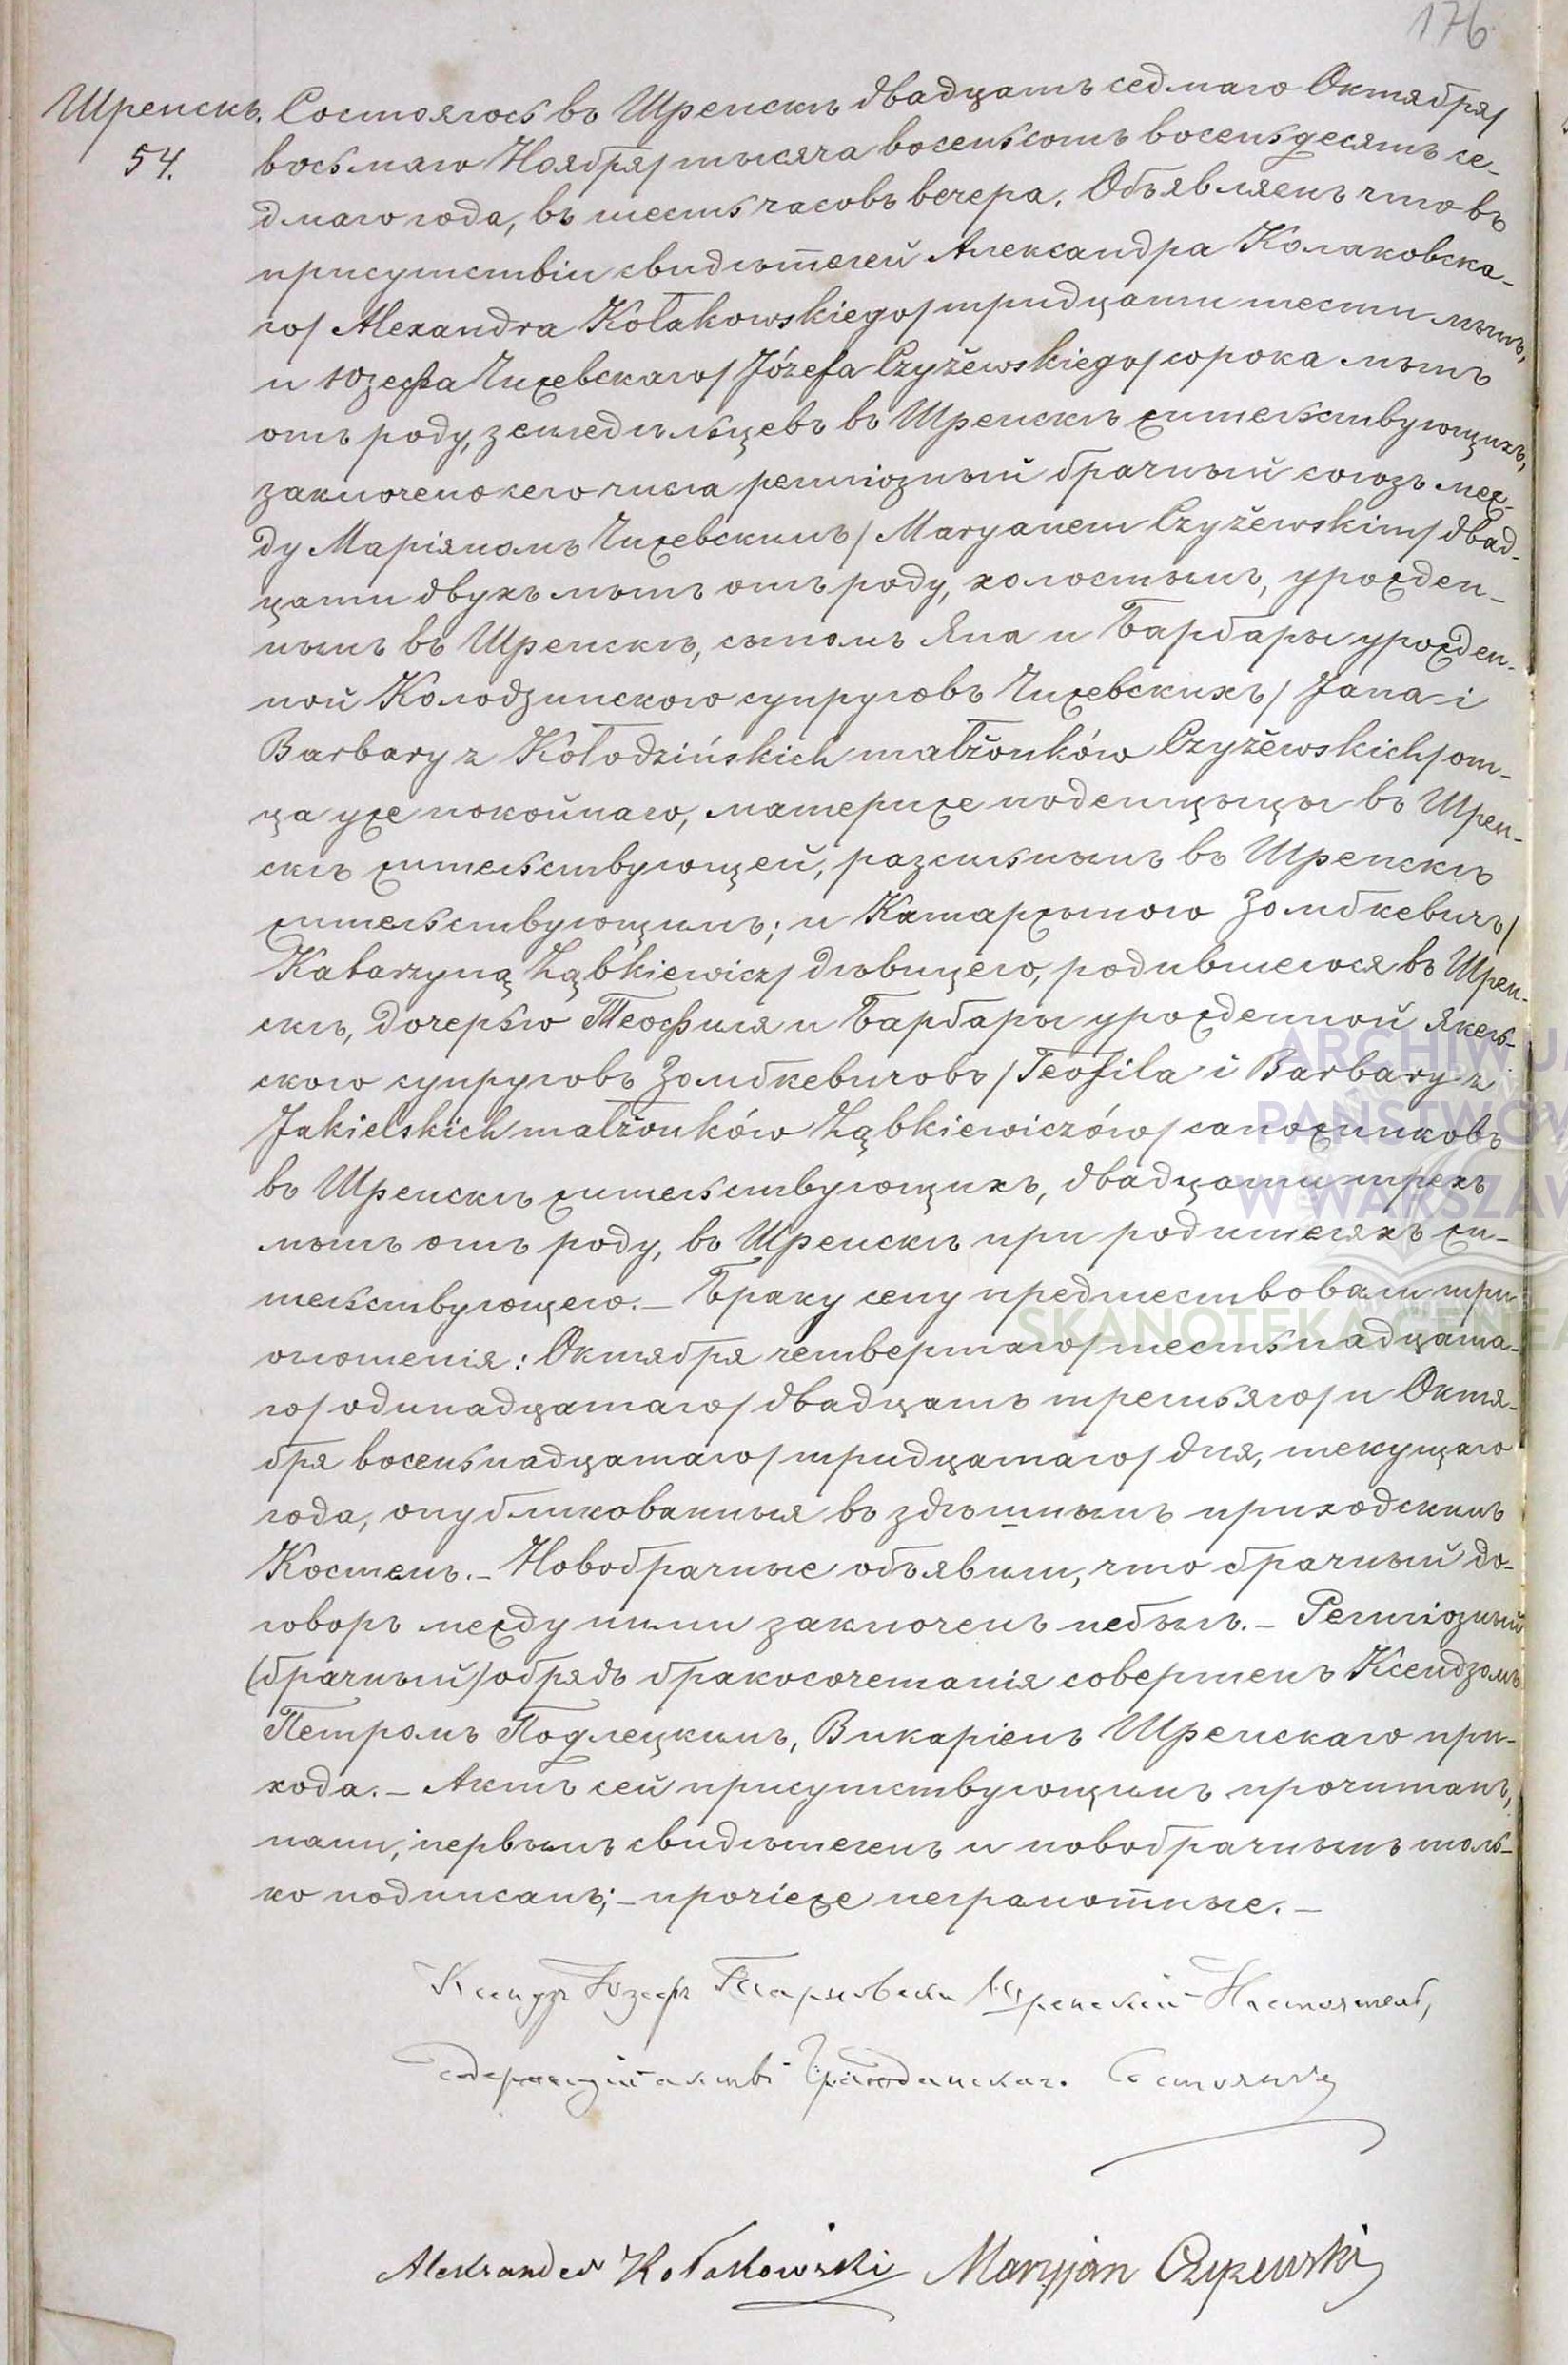 176
Шренскъ. Состоялось въ Шренскѣ двадцать седмаго Октября/
54. восьмаго Ноября/ тысяча восемьсотъ восемьдесятъ се-
дмаго года, въ шесть часовъ вечера. Объявляемъ что въ
присутствіи свидѣтелей Александра Колаковска-
го/ Alexandra Kołakowskiego/ тридцати шести лѣтъ,
и Юзефа Чижевскаго/ Józefa Czyżewskiego/ сорока лѣтъ
отъ роду, земледѣльцевъ въ Шренскѣ жительствующихъ,
заключено сего числа религіозный брачный союзъ меж-
ду Маріяномъ Чижевскимъ/ Maryanem Czyżewskim/ двад-
цати двухъ лѣтъ отъ роду, холостымъ, урожден-
нымъ въ Шренскѣ, сыномъ Яна и Барбары урожден-
ной Колодзинскою супруговъ Чижевскихъ/ Jana i
Barbary z Kołodzińskich małżonków Czyżewskich/ от-
ца уже покойнаго, материже поденщицы въ Шрен-
скѣ жительствующей, разсыльнымъ въ Шренскѣ
жительствующимъ; и Катаржиною Зомбкевичъ/
Katarzyną Ząbkiewicz/ дѣвицею, родившеюся въ Шрен-
скѣ, дочерью Теофиля и Барбары урожденной Якель-
скою супруговъ Зомбкевичовъ/ Teofila i Barbary z
Jakielskich małżonków Ząbkiewiczów/ сапожниковъ
въ Шренскѣ жительствующихъ, двадцати трехъ
лѣтъ отъ роду, въ Шренскѣ при родителяхъ жи-
тельствующею. – Браку сему предшествовали три
оглошенія: Октября четвертаго/ шестьнадцата-
го/ одинадцатаго/ двадцать третьяго/ и Октя-
бря восемьнадцатаго/ тридцатаго/ дня, текущаго
года, опубликованныя въ здѣшнымъ приходскимъ
Костелѣ. – Новобрачные объявили, что брачный до-
говоръ между ними заключенъ небылъ. – Религіозный
(брачный) обрядъ бракосочетанія совершенъ Ксендзомъ
Петромъ Подлецкимъ, Викаріемъ Шренскаго при-
хода. – Актъ сей присутствующимъ прочитанъ,
нами, первымъ свидѣтелемъ и новобрачнымъ толь-
ко подписанъ; – прочіеже неграмотные. –
Ксендзъ Юзефъ Шренскій Настоятель,
содержащій актыі Гражданскаго Состоянія
Aleksander Kołakowski Maryjan Czyżewski
ARCHIWU
PAŃSTWOW
W WARSZAW
SKANOTEKA GENEA